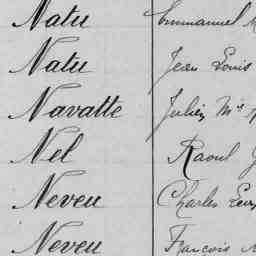 Natu Emmanuel
Natu Jean Louis
Navatte Julien Mie
Nel Raoul J
Neveu Charles Eug
Neveu François